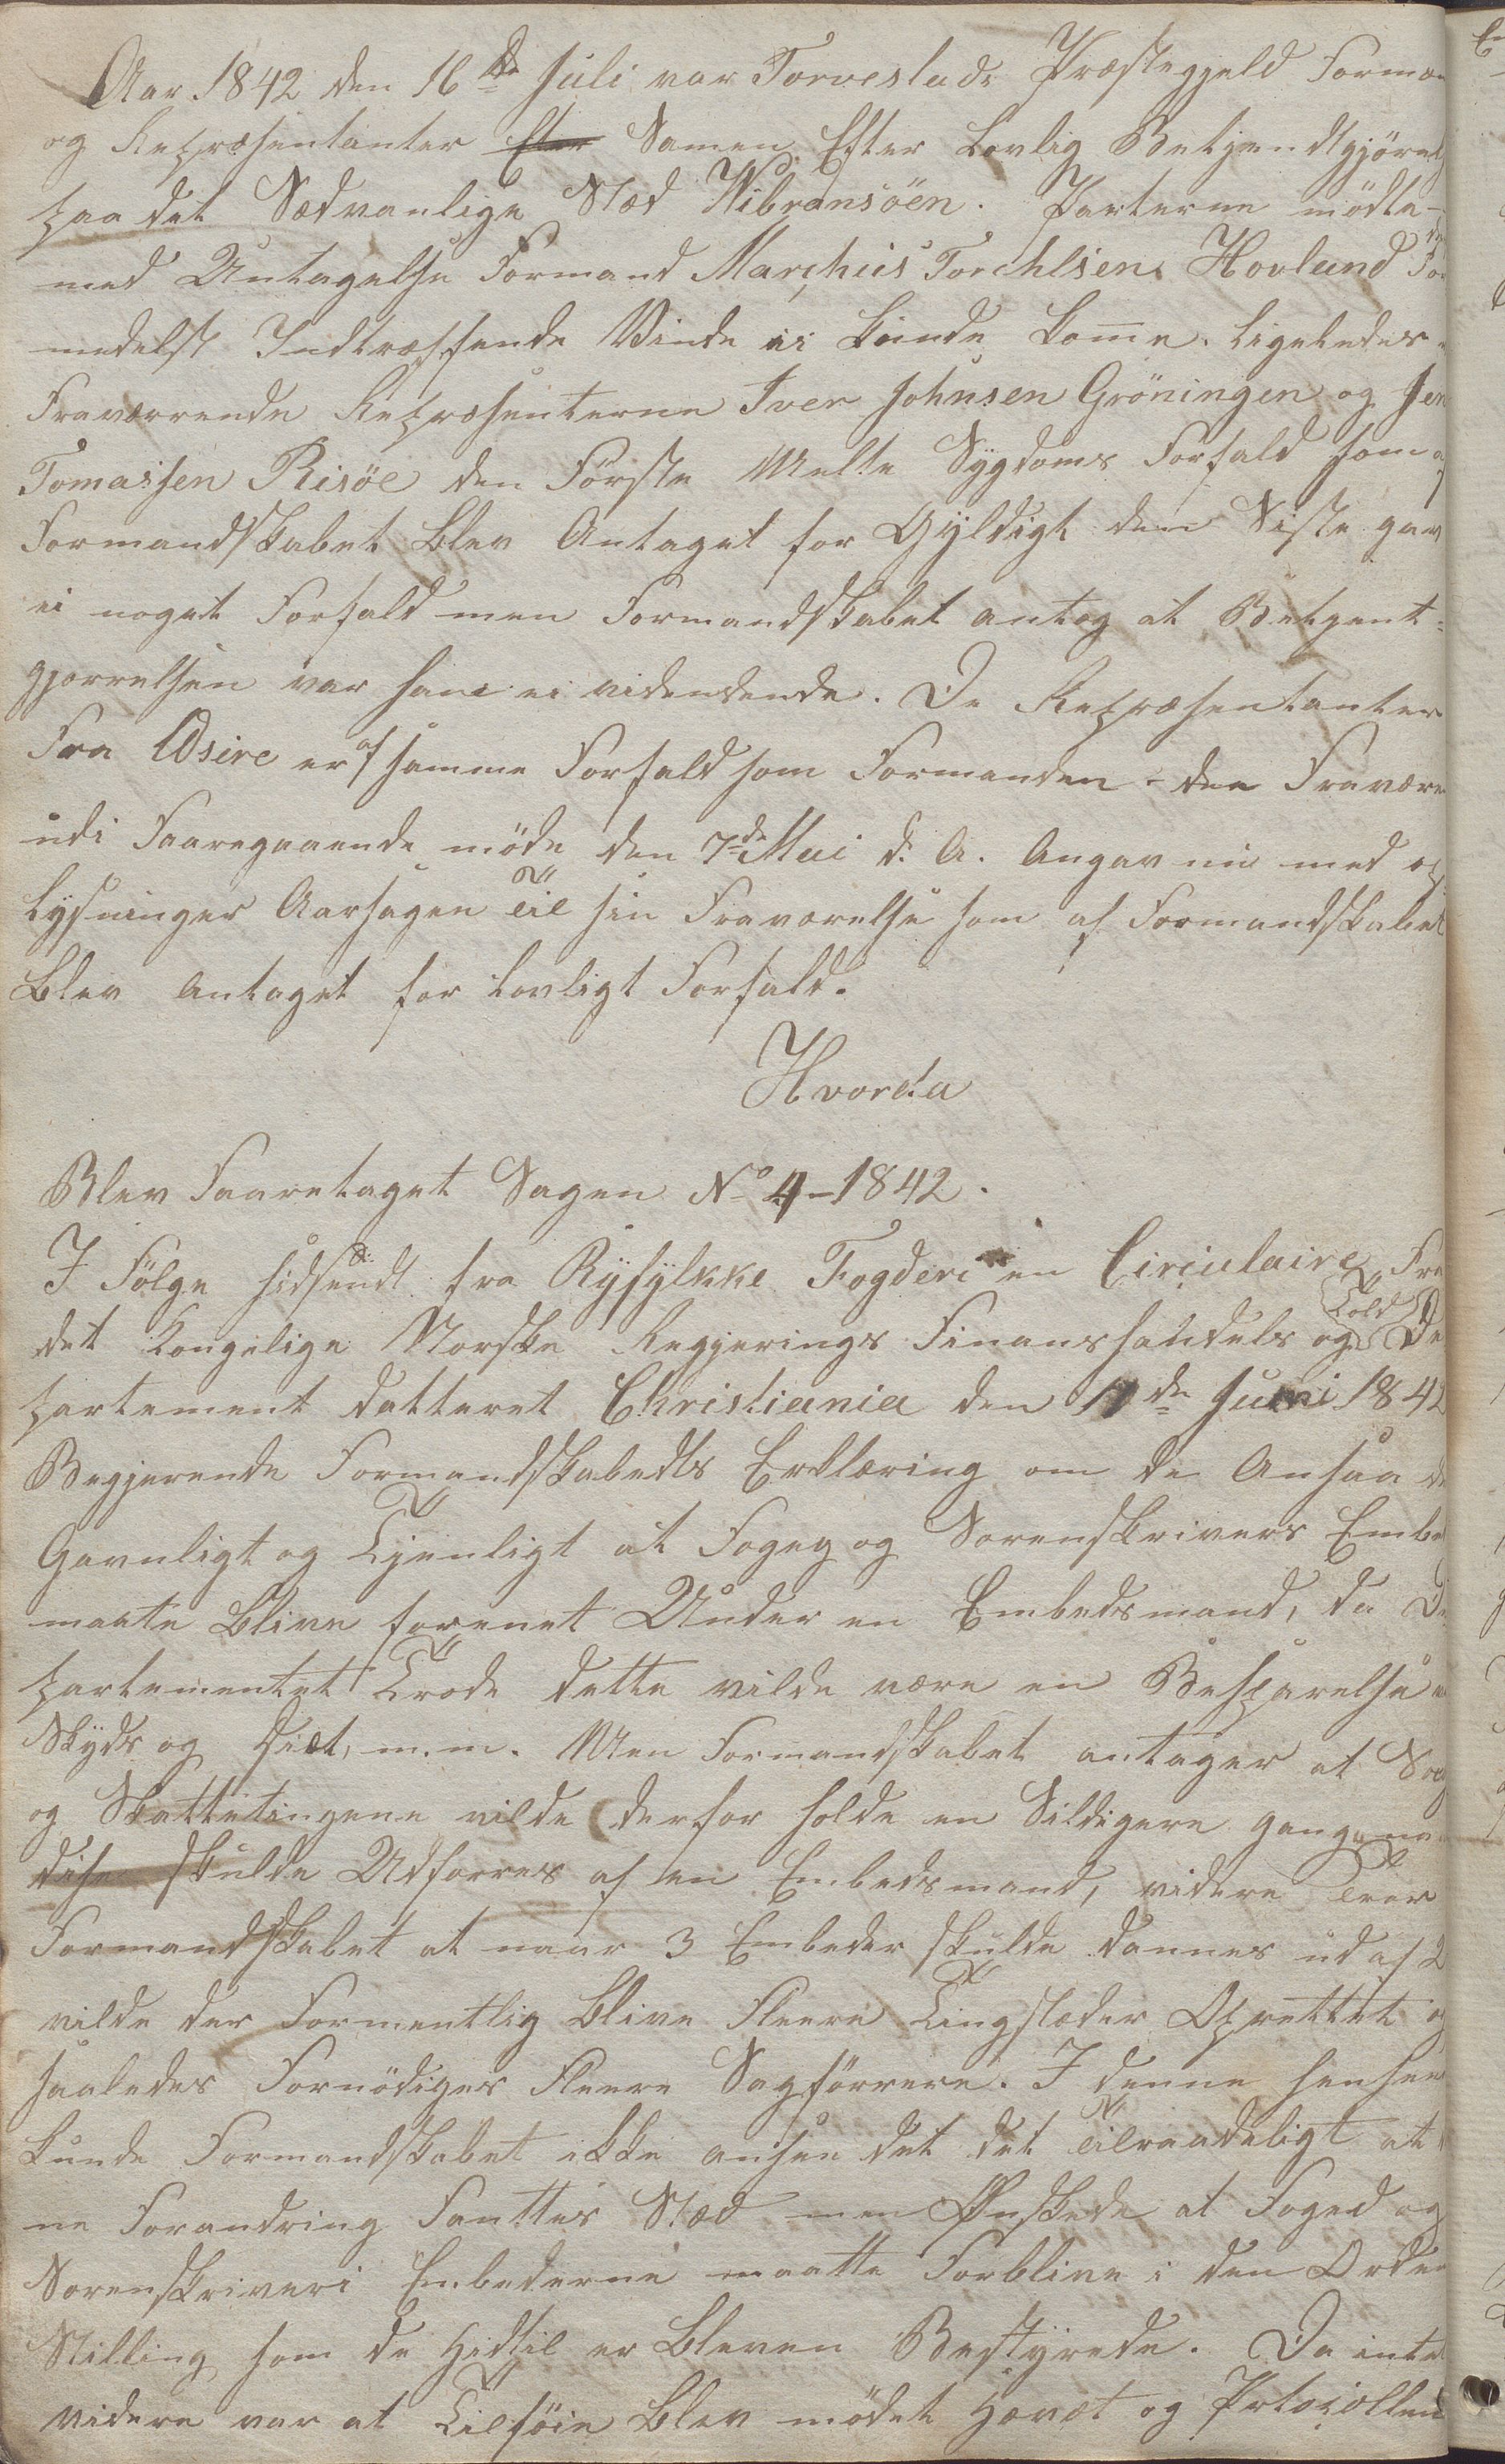 Aar 1842 den 16de Juli var Torveslads Præstegjeld Forman
og Repræsentanter Efter Samen Efter Lovlig Bekjendtgjörels
paa det Sædvanlige Stæd Wibransöen. Parterne mödte
med Untagelse Formand Marchus Torchlsen Hovland For
medelst Indtræffende Vinde ei kunde komme. Ligeledes
Fraværrende Repræsenterne Iver Johnsen Gröningen og Jen
Tomassen Risöe den Förste Melte Sygdoms Forfald som af
Formandskabet Blev Antaget for Gyldigt den Siste gav
ei noget Forfald men Formandskabet antog at Bekjent-
gjorrelsen var ham ei videndende. De Repræsentanter
Fra Udsire er af samme Forfald som Formanden - den Fravære
udi Faaregaaende möde den 7de Mai d. A. Angav nu med op
lysninger Aarsagen til sin Fraværelse som af Formandskabet
Blev Antaget for Lovligt Forfald.
Hvorda
Blev Faaretaget Sagen No 4-1842.
I Fölge hidsendt fra Ryfylkke Fogderi en Circulaire Fra
det Kongelige Norske Regjerings Finanshandels og Told De
partement datteret Christiania den 11de Juni 1842
Begjerende Formandskabedts Erklæring om de Ansaa de
Gavnligt og Tjenligt at Foged og Sorenskrivers Embe
maate Blive forenet Under en Embedsmand, da De
partementet Trode dette vilde være en Besparelse
Skyds og Diæt, m.m. Men Formandskabet antager at Sag
og Skattetingene vilde derfor holde en Sildigere gang
disse skulde Udforres af en Embedsmand, videre troer
Formandskabet at naar 3 Embeder skulde dannes ud af 2
vilde der Formentlig Blive Fleere Tingstæder Oprettet og
saaledes Fornödiges Fleere Sagförrere. I denne hensee
kunde Formandskabet ikke ansee det det tilraadeligt at
ne Forandring Fanttes Stæd men Önskede at Foged og
Sorenskriveri Embederne maatte Forblive i den Orden
Stilling som de Hidtil er Bleven Bestyrede. Da intet
videre var at Tilföie Blev mödet Hævet og Prtocollen